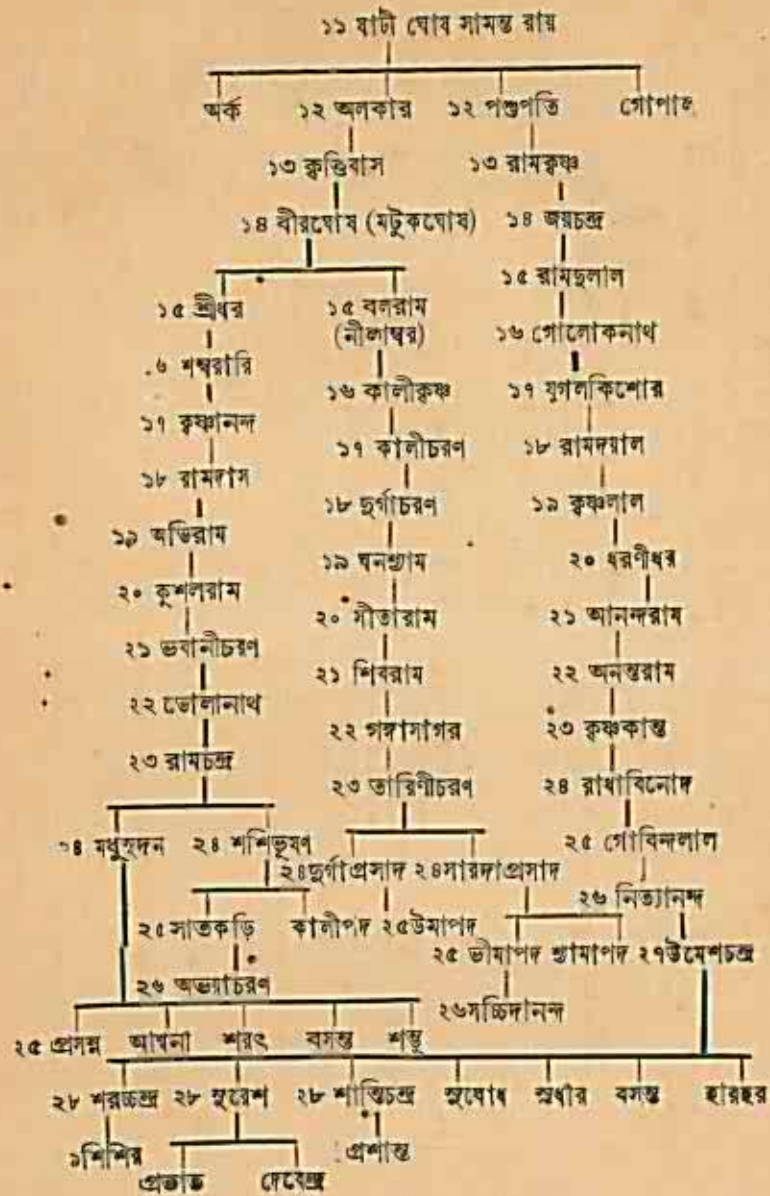 ১১ ষাটী ঘোষ সামন্ত রায়
অর্ক ১২ অলকার ১২ পশুপতি গোপাল
১৩ কৃত্তিবাস ১৩ রামকৃষ্ণ
১৪ বীরঘোষ (মটুকঘোষ) ১৪ জয়চন্দ্র
১৫ রামদুলাল
১৫ শ্রীধর ১৫ বলরাম
(নীলাম্বর) ১৬ গোলোকনাথ
৬ শম্বরারি ১৬ কালীকৃষ্ণ ১৭ যুগলকিশোর
১৭ কৃষ্ণানন্দ ১৭ কালীচরণ ১৮ রামদয়াল
১৮ রামদাস ১৮ দুর্গাচরণ ১৯ কৃষ্ণলাল
১৯ অভিরাম ১৯ ঘনশ্যাম ২০ ধরণীধর
২০ কুশলরাম ২০ সীতারাম ২১ আনন্দরাম
২১ ভবানীচরণ ২১ শিবরাম ২২ অনন্তরাম
২২ ভোলানাথ ২২ গঙ্গাসাগর ২৩ কৃষ্ণকান্ত
২৩ রামচন্দ্র ২৩ তারিণীচরণ ২৪ রাধাবিনোদ
২৪ মধুসূদন ২৪ শশিভূষণ ২৫ গোবিন্দলাল
২৪দুর্গাপ্রসাদ ২৪সারদাপ্রসাদ
২৬ নিত্যানন্দ
২৫সাতকড়ি কালীপদ ২৫উমাপদ
২৫ ভীমাপদ শ্যামাপদ ২৭উমেশচন্দ্র
২৬ অভয়াচরণ
২৬সচ্চিদানন্দ
২৫ প্রসন্ন আখনা শরৎ বসন্ত শম্ভু
২৮ শরচ্চন্দ্র ২৮ সুরেশ ২৮ শান্তিচন্দ্র সুবোধ সুধীর বসন্ত হরিহর
৯শিশির প্রশান্ত
প্রভাত দেবেন্দ্র